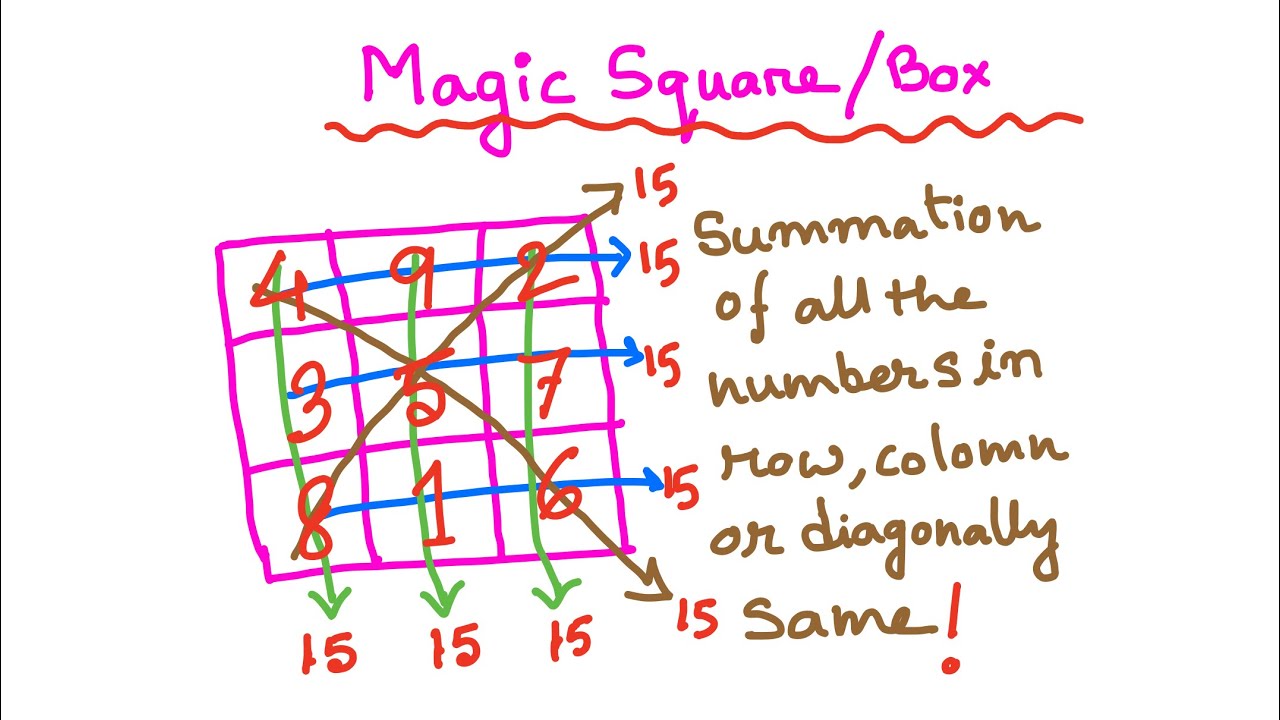 Magic Square/Box
15
4 9 2 15
3 5 7 15
8 1 6 15
15 15 15 15
Summation
of all the
numbers in
row, colomn
or diagonally
Same!